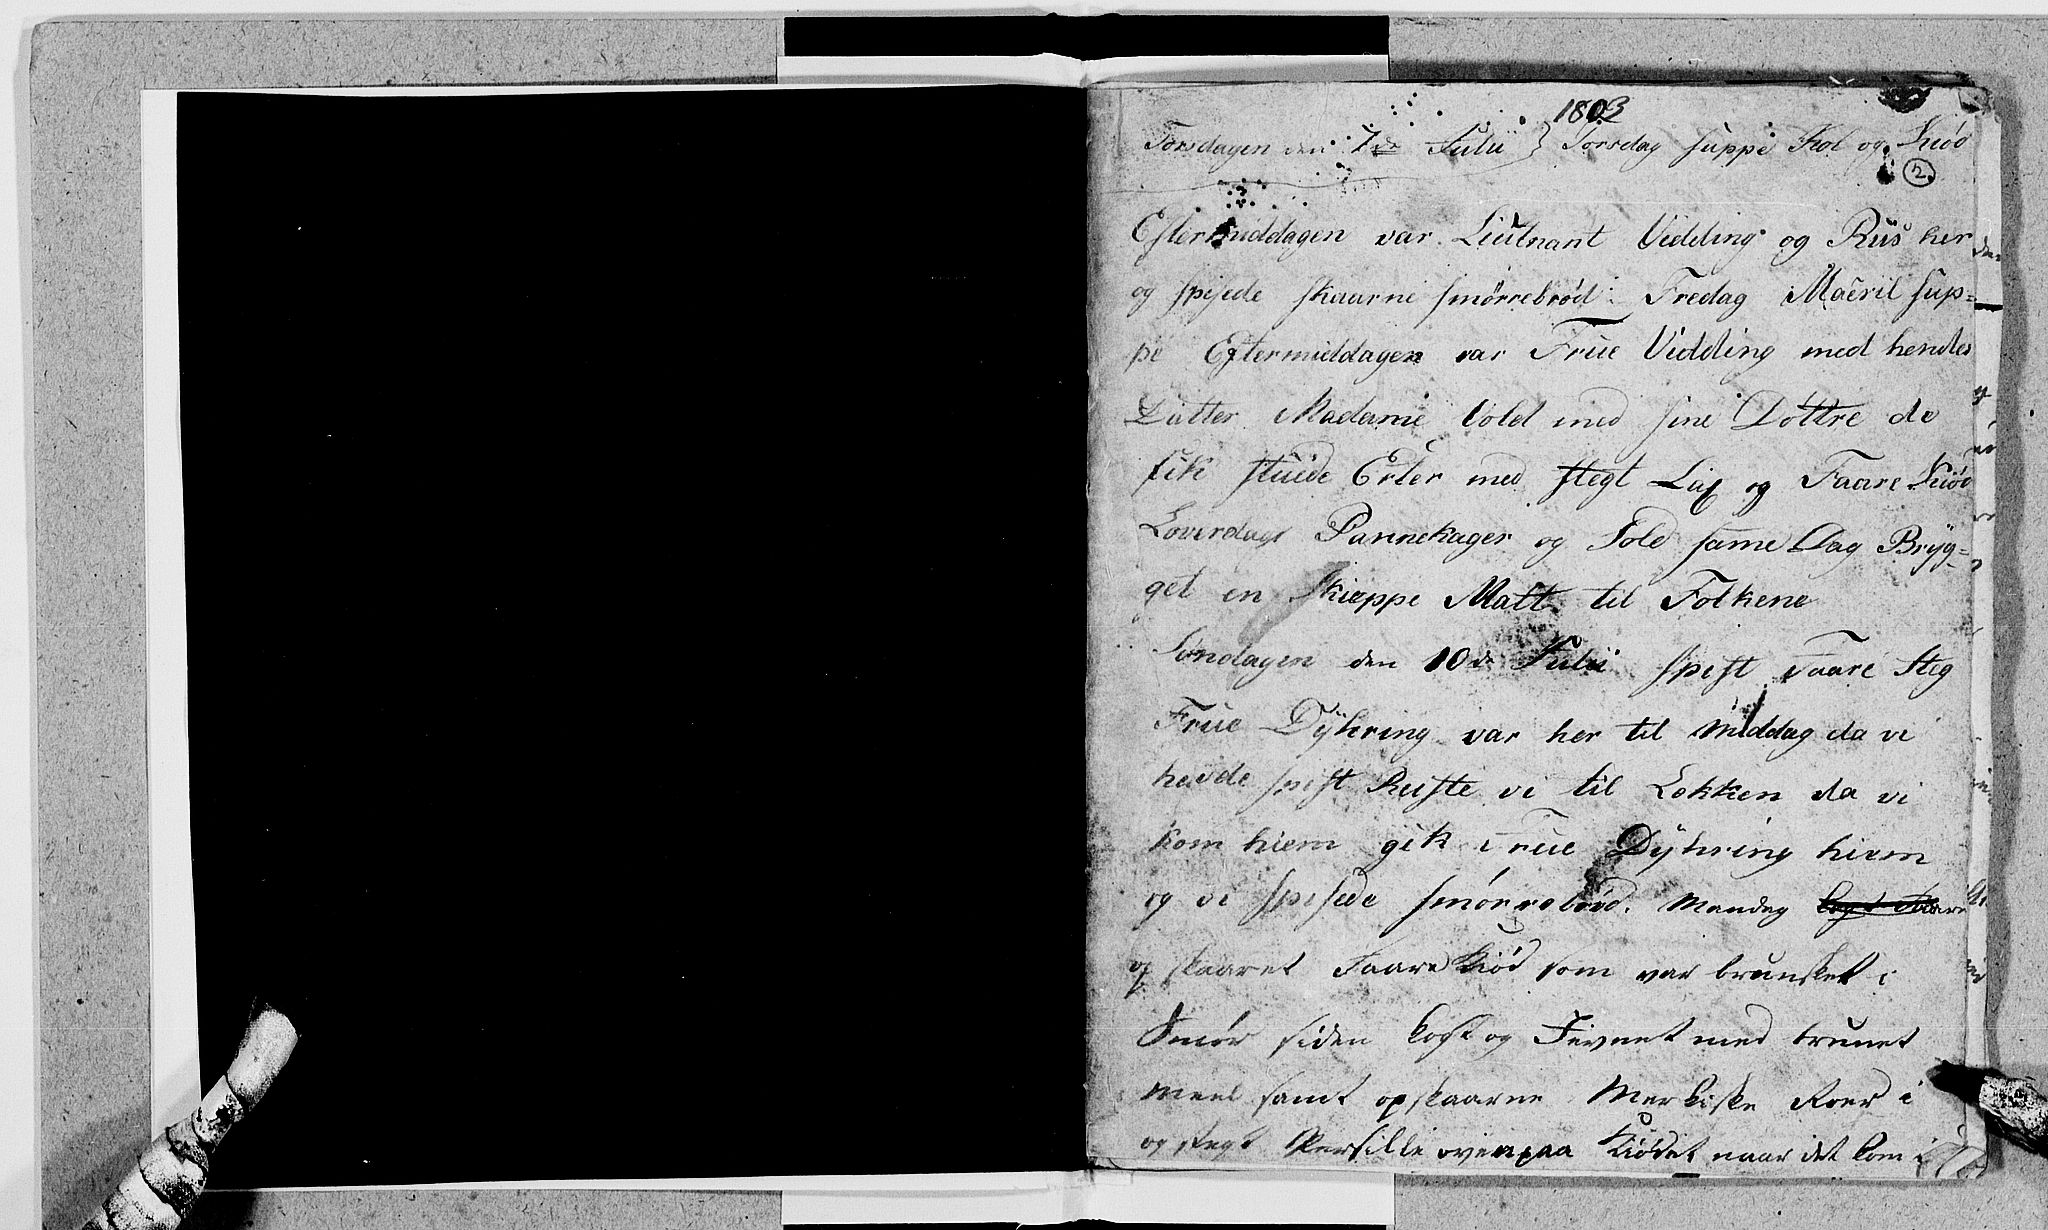 1803
Torsdagen den 7de Julii } Torsdag suppe Kol og Kiød
2.
Eftermiddagen var Liutnant Vidding og Riis her
og spisede skaarne smørrebrød: Fredag Macril sup=
pe Eftermiddagen var Frue Vidding med hendes
Datter Madame Cold med sine Døttre de
fik stuede Erter med stegt Lax og Faare Kiød
Loverdags Pannekager og Sold same Dag Bryg=
get en Skieppe Malt til Folkene
Søndagen den 10de Julii spist Faare Steg
Frue Dyhring var her til Middag da vi
havde spist Reiste vi til Løkken da vi
kom hiem gik Frue Dyhring hiem
og vi spisede smørrebrød. Mandag kogt Faare
opskaaret Faare Kiød som var brunket i
Smør siden kogt og Jevnet med brunet
Meel samt opskaarne Merkiske Roer i
og stegt Persille ovenpaa Kiødet naar det kom i